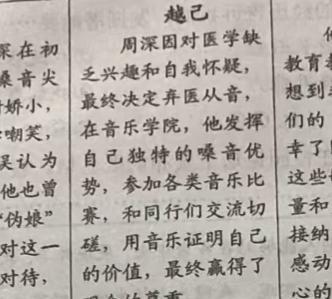 深在初
嗓音尖
娇小，
嘲笑，
误认为
他也曾
“伪娘”
对这一
对待，
越己
周深因对医学缺
乏兴趣和自我怀疑，
最终决定弃医从音，
在音乐学院，他发挥
自己独特的嗓音优
势，参加各类音乐比
赛，和同行们交流切
磋，用音乐证明自己
的价值，最终赢得了
教育
想到
们的
幸了
这些
量和
接纳
感动
心的